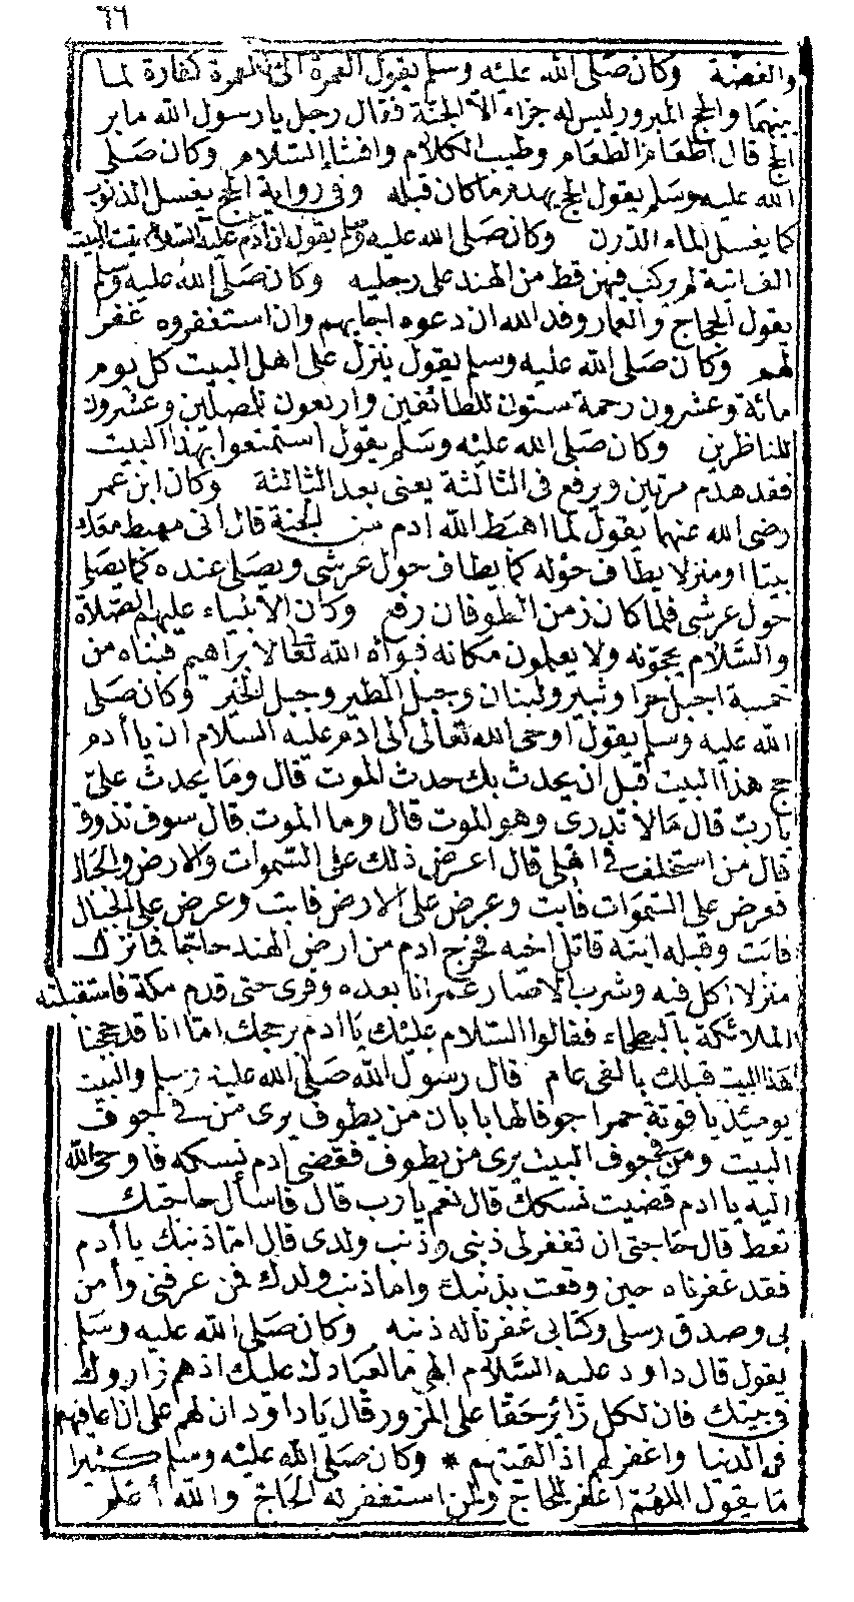 ٦٦
والفضة وكان صلى الله عليه وسلم يقول العمرة الى العمرة كفارة لما
بينهما والحج المبرور ليس له جزاء الا الجنة فقال رجل يا رسول الله ما بر
الحج قال اطعام الطعام وطيب الكلام وافشاء السلام وكان صلى
الله عليه وسلم يقول الحج يهدم ما كان قبله وفى رواية الحج يغسل الذنوب
كما يغسل الماء الدرن وكان صلى الله عليه وسلم يقول ان آدم عليه السلام البيت
الف اتية لم يركب فيهن قط من الهند على رجليه وكان صلى الله عليه وسلم
يقول الحجاج والعمار وفد الله ان دعوه اجابهم وان استغفروه غفر
لهم وكان صلى الله عليه وسلم يقول ينزل على اهل البيت كل يوم
مائة وعشرون رحمة ستون للطائفين واربعون للمصلين وعشرون
للناظرين وكان صلى الله عليه وسلم يقول استمتعوا بهذا البيت
فقد هدم مرتين ويرفع فى الثالثة يعنى بعد الثالثة وكان ابن عمر
رضى الله عنهما يقول لما اهبط الله ادم من الجنة قال انى مهبط معك
بيتا او منزلا يطاف حوله كما يطاف حول عرشى ويصلى عنده كما يصلى
حول عرشى فلما كان زمن الطوفان رفع وكان الأنبياء عليهم الصلاة
والسلام يحجونه ولا يعلمون مكانه فبوأه الله تعالى لابراهيم فبناه من
خمسة اجبل حرا وثبير ولبنان وجبل الطير وجبل الخير وكان صلى
الله عليه وسلم يقول اوحى الله تعالى الى ادم عليه السلام ان يا أدم
حج هذا البيت قبل ان يحدث بك حدث الموت قال وما يحدث علىّ
يا رب قال مالا تدرى وهو الموت قال وما الموت قال سوف تذوق
قال من استخلف فى اهلى قال اعرض ذلك على السموات والارض والجبال
فعرض على السموات فابت وعرض على الارض فابت وعرض على الجبال
فابت وقبله ابنه قاتل اخيه فخرج ادم من ارض الهند حاجا فما نزل
منزلا اكل فيه وشرب الا صار عمرانا بعده وقرى حتى قدم مكة فاستقبلته
الملائكة بالبطحاء فقالوا السلام عليك يا ادم برحجك اما انا قد حججنا
هذا البيت قبلك بالفى عام قال رسول الله صلى الله عليه وسلم والبيت
يومئذ ياقوتة حمرا جوفا لها بابان من يطوف يرى من فى جوف
البيت ومن فى جوف البيت يرى من يطوف فقضى ادم نسكه فاوحى الله
اليه يا ادم قضيت نسكك قال نعم يا رب قال فاسأل حاجتك
تعط قال حاجتى ان تغفر لى ذنبى وذنب ولدى قال اما ذنبك يا أدم
فقد غفرناه حين وقعت بذنبك واما ذنب ولدك فمن عرفنى وأمن
بى وصدق رسلى وكتابى غفرنا له ذنبه وكان صلى الله عليه وسلم
يقول قال داود عليه السلام الهى ما لعبادك عليك اذ هم زاروك
فى بيتك فان لكل زائر حقا على المزور قال يا داود ان لهم على ان اعافيهم
فى الدنيا واغفر لهم اذا لقيتهم * وكان صلى الله عليه وسلم كثيرا
ما يقول اللهم اغفر للحاج ولمن استغفر له الحاج والله أعلم